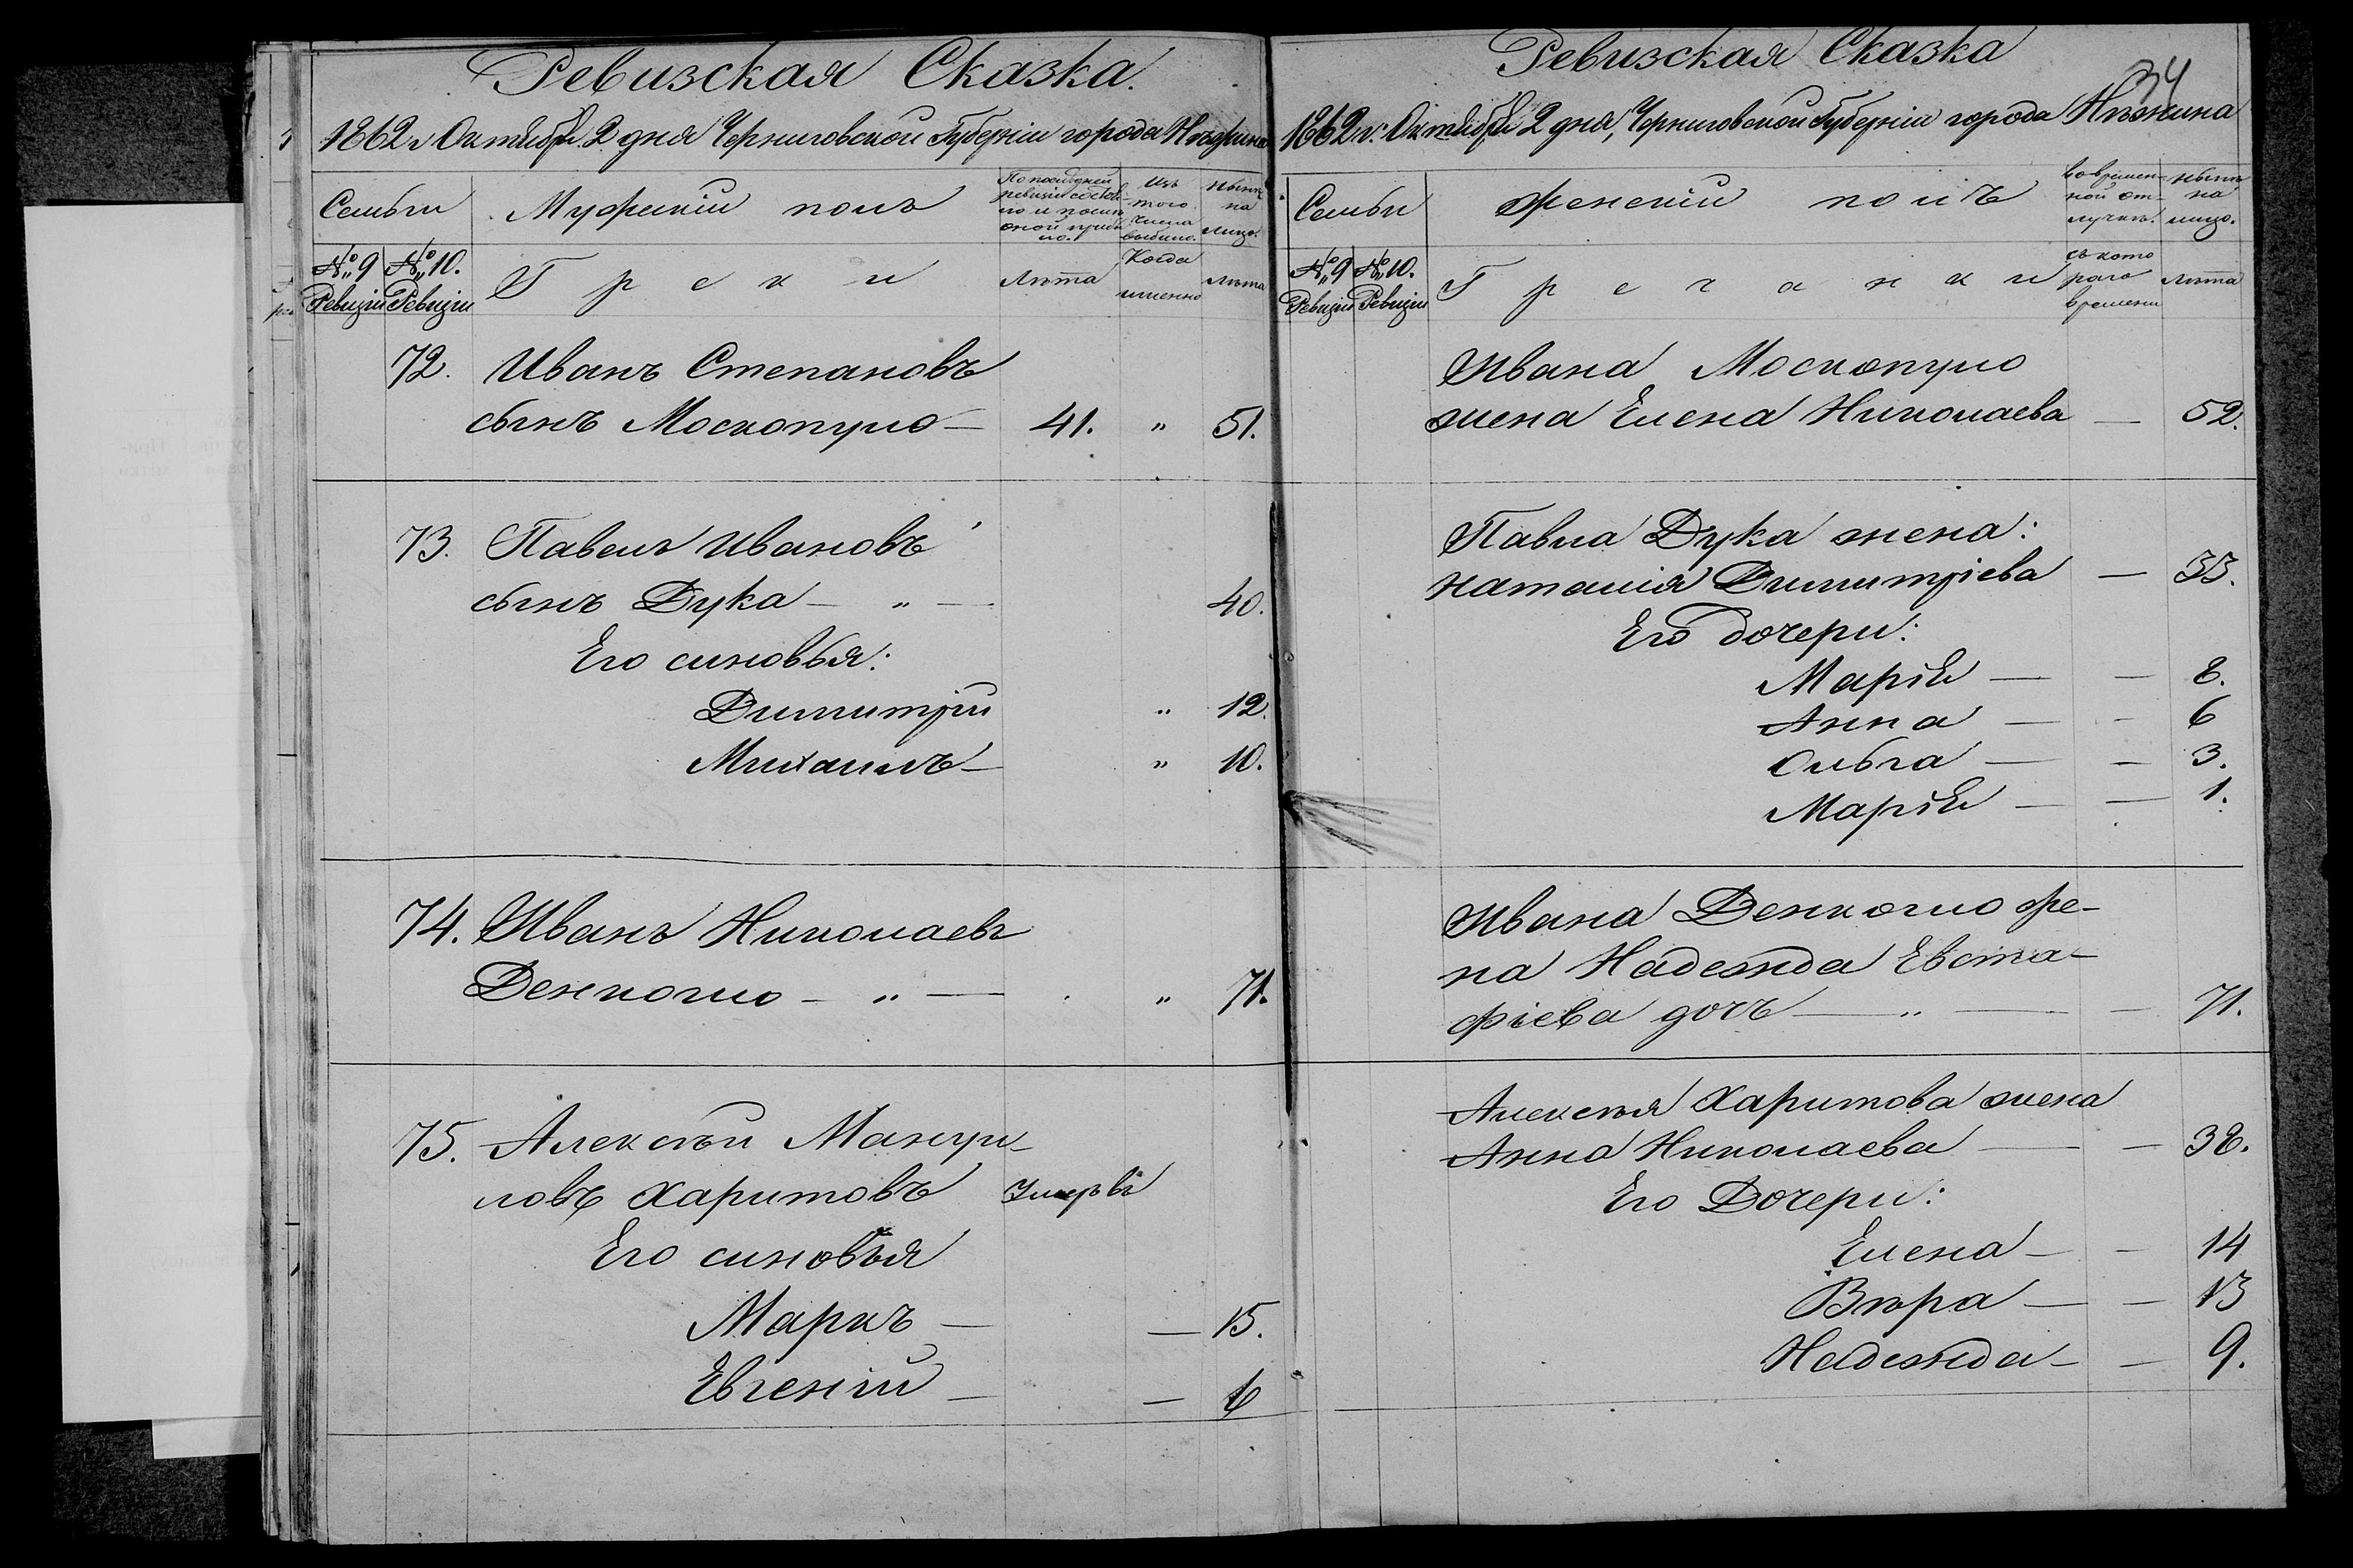 Ревизская Сказка.
1862 г. Октября 2 дня Черниговской Губерніи города Нѣжина
Семьи
Мужескій полъ
По послѣдней ревизіи состояло и послѣ оной прибыло.
Изъ того числа выбыло.
Нынѣ на лицо.
№ 9 Ревизіи
№ 10. Ревизіи
Греки
Лѣта
Когда именно
Лѣта
72. Иванъ Степановъ
сынъ Москопуло — 41. " 51.
73. Павелъ Ивановъ
сынъ Дука — " — 40.
Его синовья:
Димитрій " 12.
Михаилъ — " 10.
74. Иванъ Николаевъ
Денкоглю — " — " 71.
75. Алексѣй Мануи-
ловъ Харитовъ Умеръ
Его синовья
Маркъ — — 15.
Евгеній — — 6
Ревизская Сказка
34
1862 г. Октября 2 дня, Черниговской Губерніи города Нѣжина
Семьи
Женскій полъ
Во времен-
ной от-
лучкѣ.
Нынѣ на лицо.
№ 9 Ревизіи
№ 10. Ревизіи
Гречанки
Съ кото
раго
времени
Лѣта
Ивана Москопуло
жена Елена Николаева — 52.
Павла Дука жена:
Наталія Димитріева — 33.
Его дочери:
Марія — — 8.
Анна — — 6
Ольга — — 3.
Марія — — 1.
Ивана Денкоглю же-
на Надежда Евста-
фіева дочъ — " — — 71.
Алексѣя Харитова жена
Анна Николаева — — 38.
Его Дочери:
Елена — — 14
Вѣра — — 13
Надежда — — 9.